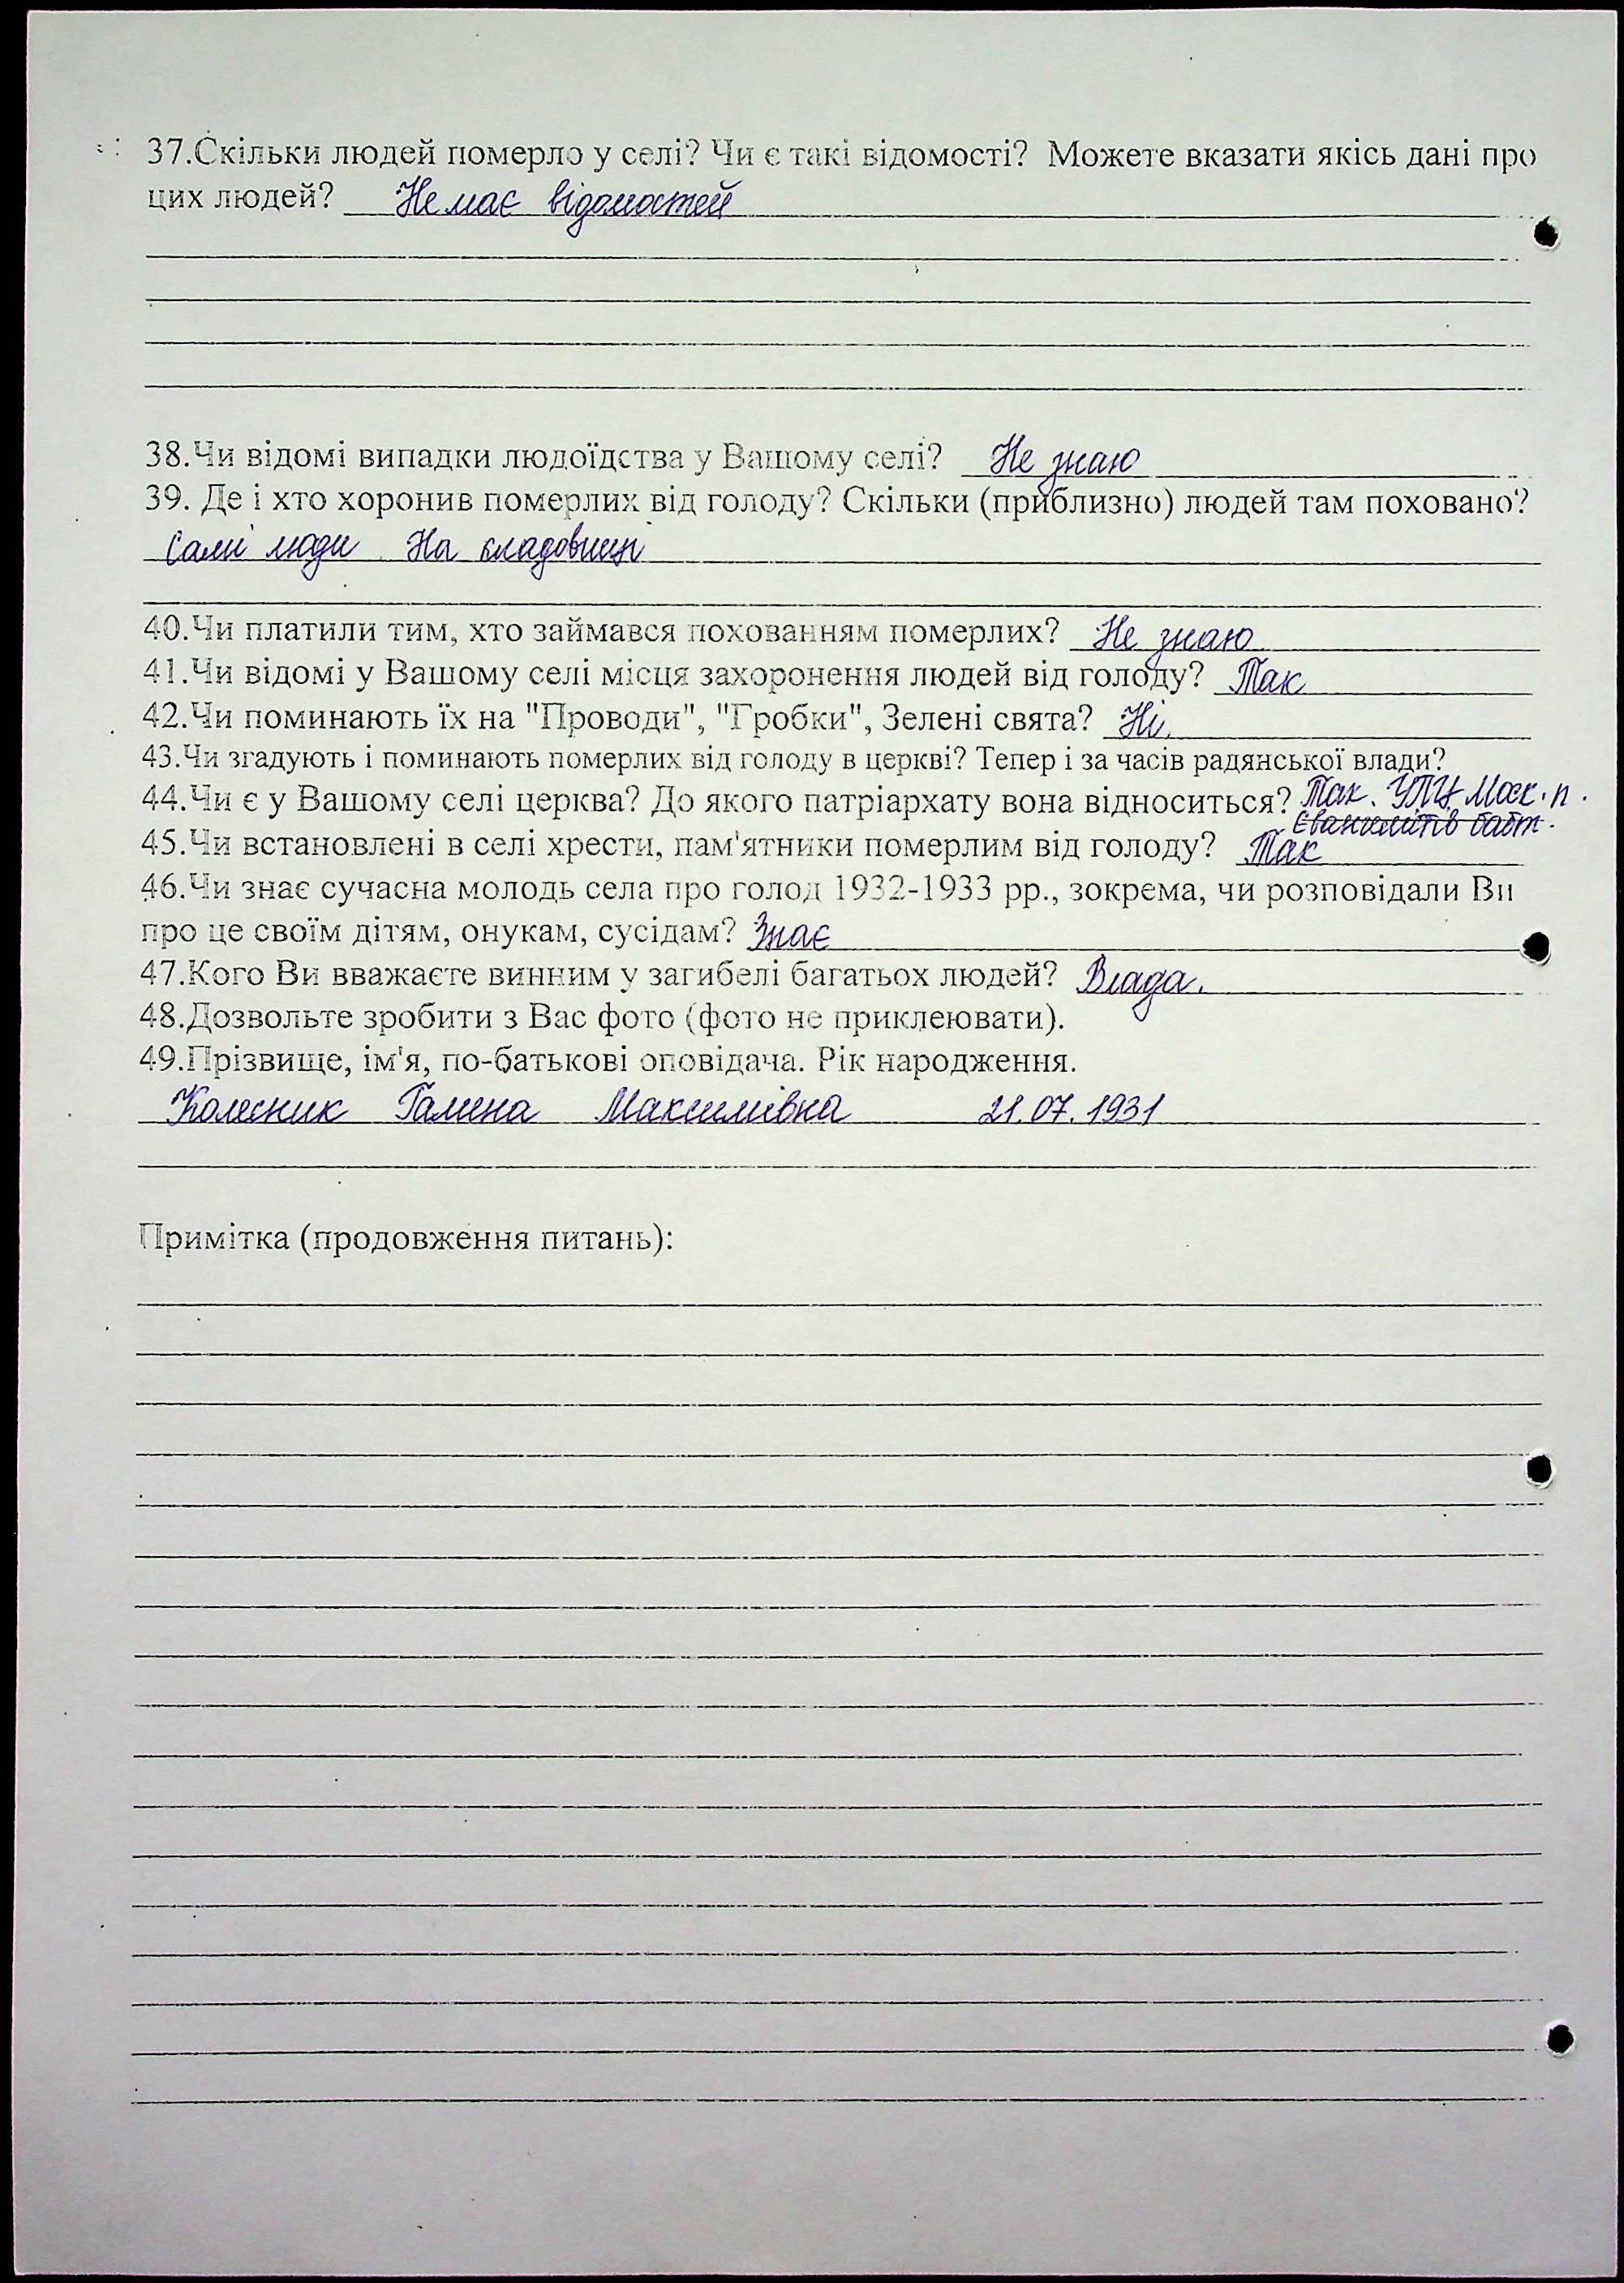 37.Скільки людей померло у селі? Чи є такі відомості? Можете вказати якісь дані про
цих людей? Немає відомостей
38.Чи відомі випадки людоїдства у Вашому селі? Не знаю
39. Де і хто хоронив померлих від голоду? Скільки (приблизно) людей там поховано?
Самі люди На кладовищі
40.Чи платили тим, хто займався похованням померлих? Не знаю
41.Чи відомі у Вашому селі місця захоронення людей від голоду? Так
42.Чи поминають їх на "Проводи", "Гробки", Зелені свята? Ні.
43.Чи згадують і поминають померлих від голоду в церкві? Тепер і за часів радянської влади?
44.Чи є у Вашому селі церква? До якого патріархату вона відноситься? Так. УПЦ Моск. п.
Євангелистів бабт.
45.Чи встановлені в селі хрести, пам'ятники померлим від голоду? Так
46.Чи знає сучасна молодь села про голод 1932-1933 рр., зокрема, чи розповідали Ви
про це своїм дітям, онукам, сусідам? Знає
47.Кого Ви вважаєте винним у загибелі багатьох людей? Влада.
48.Дозвольте зробити з Вас фото (фото не приклеювати).
49.Прізвище, ім'я, по-батькові оповідача. Рік народження.
Колесник Галина Максимівна 21.07.1931
Примітка (продовження питань):